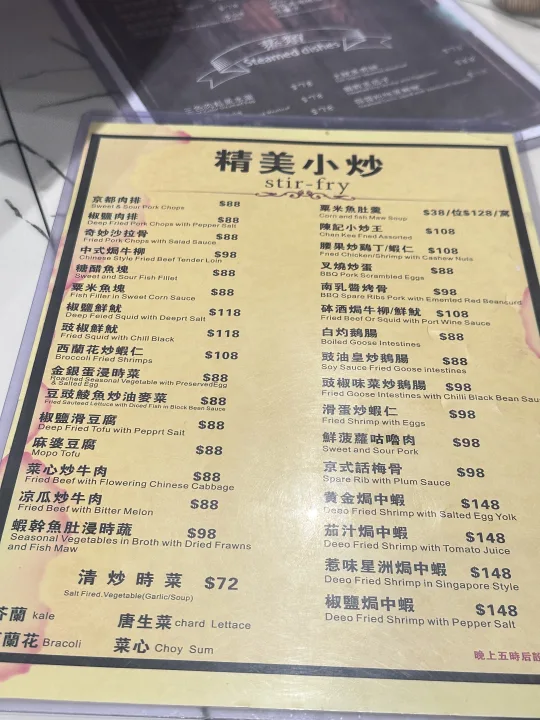 Steamed dishes
精美小炒
stir-fry
京都肉排 $88
Sweet & Sour Pork Chops
椒鹽肉排 $88
Deep Fried Pork Chops with Pepper Salt
奇妙沙拉骨 $88
Fried Pork Chops with Salad Sauce
中式焗牛柳 $98
Chinese Style Fried Beef Tender Loin
糖醋魚塊 $88
Sweet and Sour Fish Fillet
粟米魚塊 $88
Fish Filler in Sweet Corn Sauce
椒鹽鮮魷 $118
Deep Feied Squid with Deeprt Salt
豉椒鮮魷 $118
Fried Squid with Chili Black
西蘭花炒蝦仁 $108
Broccoli Fried Shrimps
金銀蛋浸時菜 $88
Roached Seasonal Vegetable with PreservedEgg
& Salted Egg
豆豉鯪魚炒油麥菜 $88
Fried Sauteed Lettuce with Diced Fish in Block Bean Sauce
椒鹽滑豆腐 $88
Deep Fried Tofu with Pepprt Salt
麻婆豆腐 $88
Mopo Tofu
菜心炒牛肉 $88
Fried Beef with Flowering Chinese Cabbage
凉瓜炒牛肉 $88
Fried Beef with Bitter Melon
蝦幹魚肚浸時蔬 $98
Seasonal Vegetables in Broth with Dried Frawns
and Fish Maw
粟米魚肚羹 $38/位$128/窩
Corn and fish Maw Soup
陳記小炒王 $108
Chan Kee Fried Assorted
腰果炒鷄丁/蝦仁 $108
Fried Chicken/Shrimp with Cashew Nuts
叉燒炒蛋 $88
BBQ Pork Scrambled Eggs
南乳醬烤骨 $98
BBQ Spare Ribs Pork with Emented Red Beancurd
砵酒焗牛柳/鮮魷 $108
Fried Beef Or Squid with Port Wine Sauce
白灼鵝腸 $88
Boiled Goose Intestines
豉油皇炒鵝腸 $88
Soy Sauce Fried Goose Intestines
豉椒味菜炒鵝腸 $98
Fried Goose Intestines with Chilli Black Bean Sau
滑蛋炒蝦仁 $98
Fried Shrimp with Eggs
鮮菠蘿咕嚕肉 $98
Sweet and Sour Pork
京式話梅骨 $98
Spare Rib with Plum Sauce
黄金焗中蝦 $148
Deeo Fried Shrimp with Salted Egg Yolk
茄汁焗中蝦 $148
Deeo Fried Shrimp with Tomato Juice
惹味星洲焗中蝦 $148
Deeo Fried Shrimp in Singapore Style
椒鹽焗中蝦 $148
Deeo Fried Shrimp with Pepper Salt
清炒時菜 $72
Salt Fired.Vegetable(Garlic/Soup)
芥蘭 kale 唐生菜 chard Lettace
蘭花 Bracoli 菜心 Choy Sum
晚上五時后